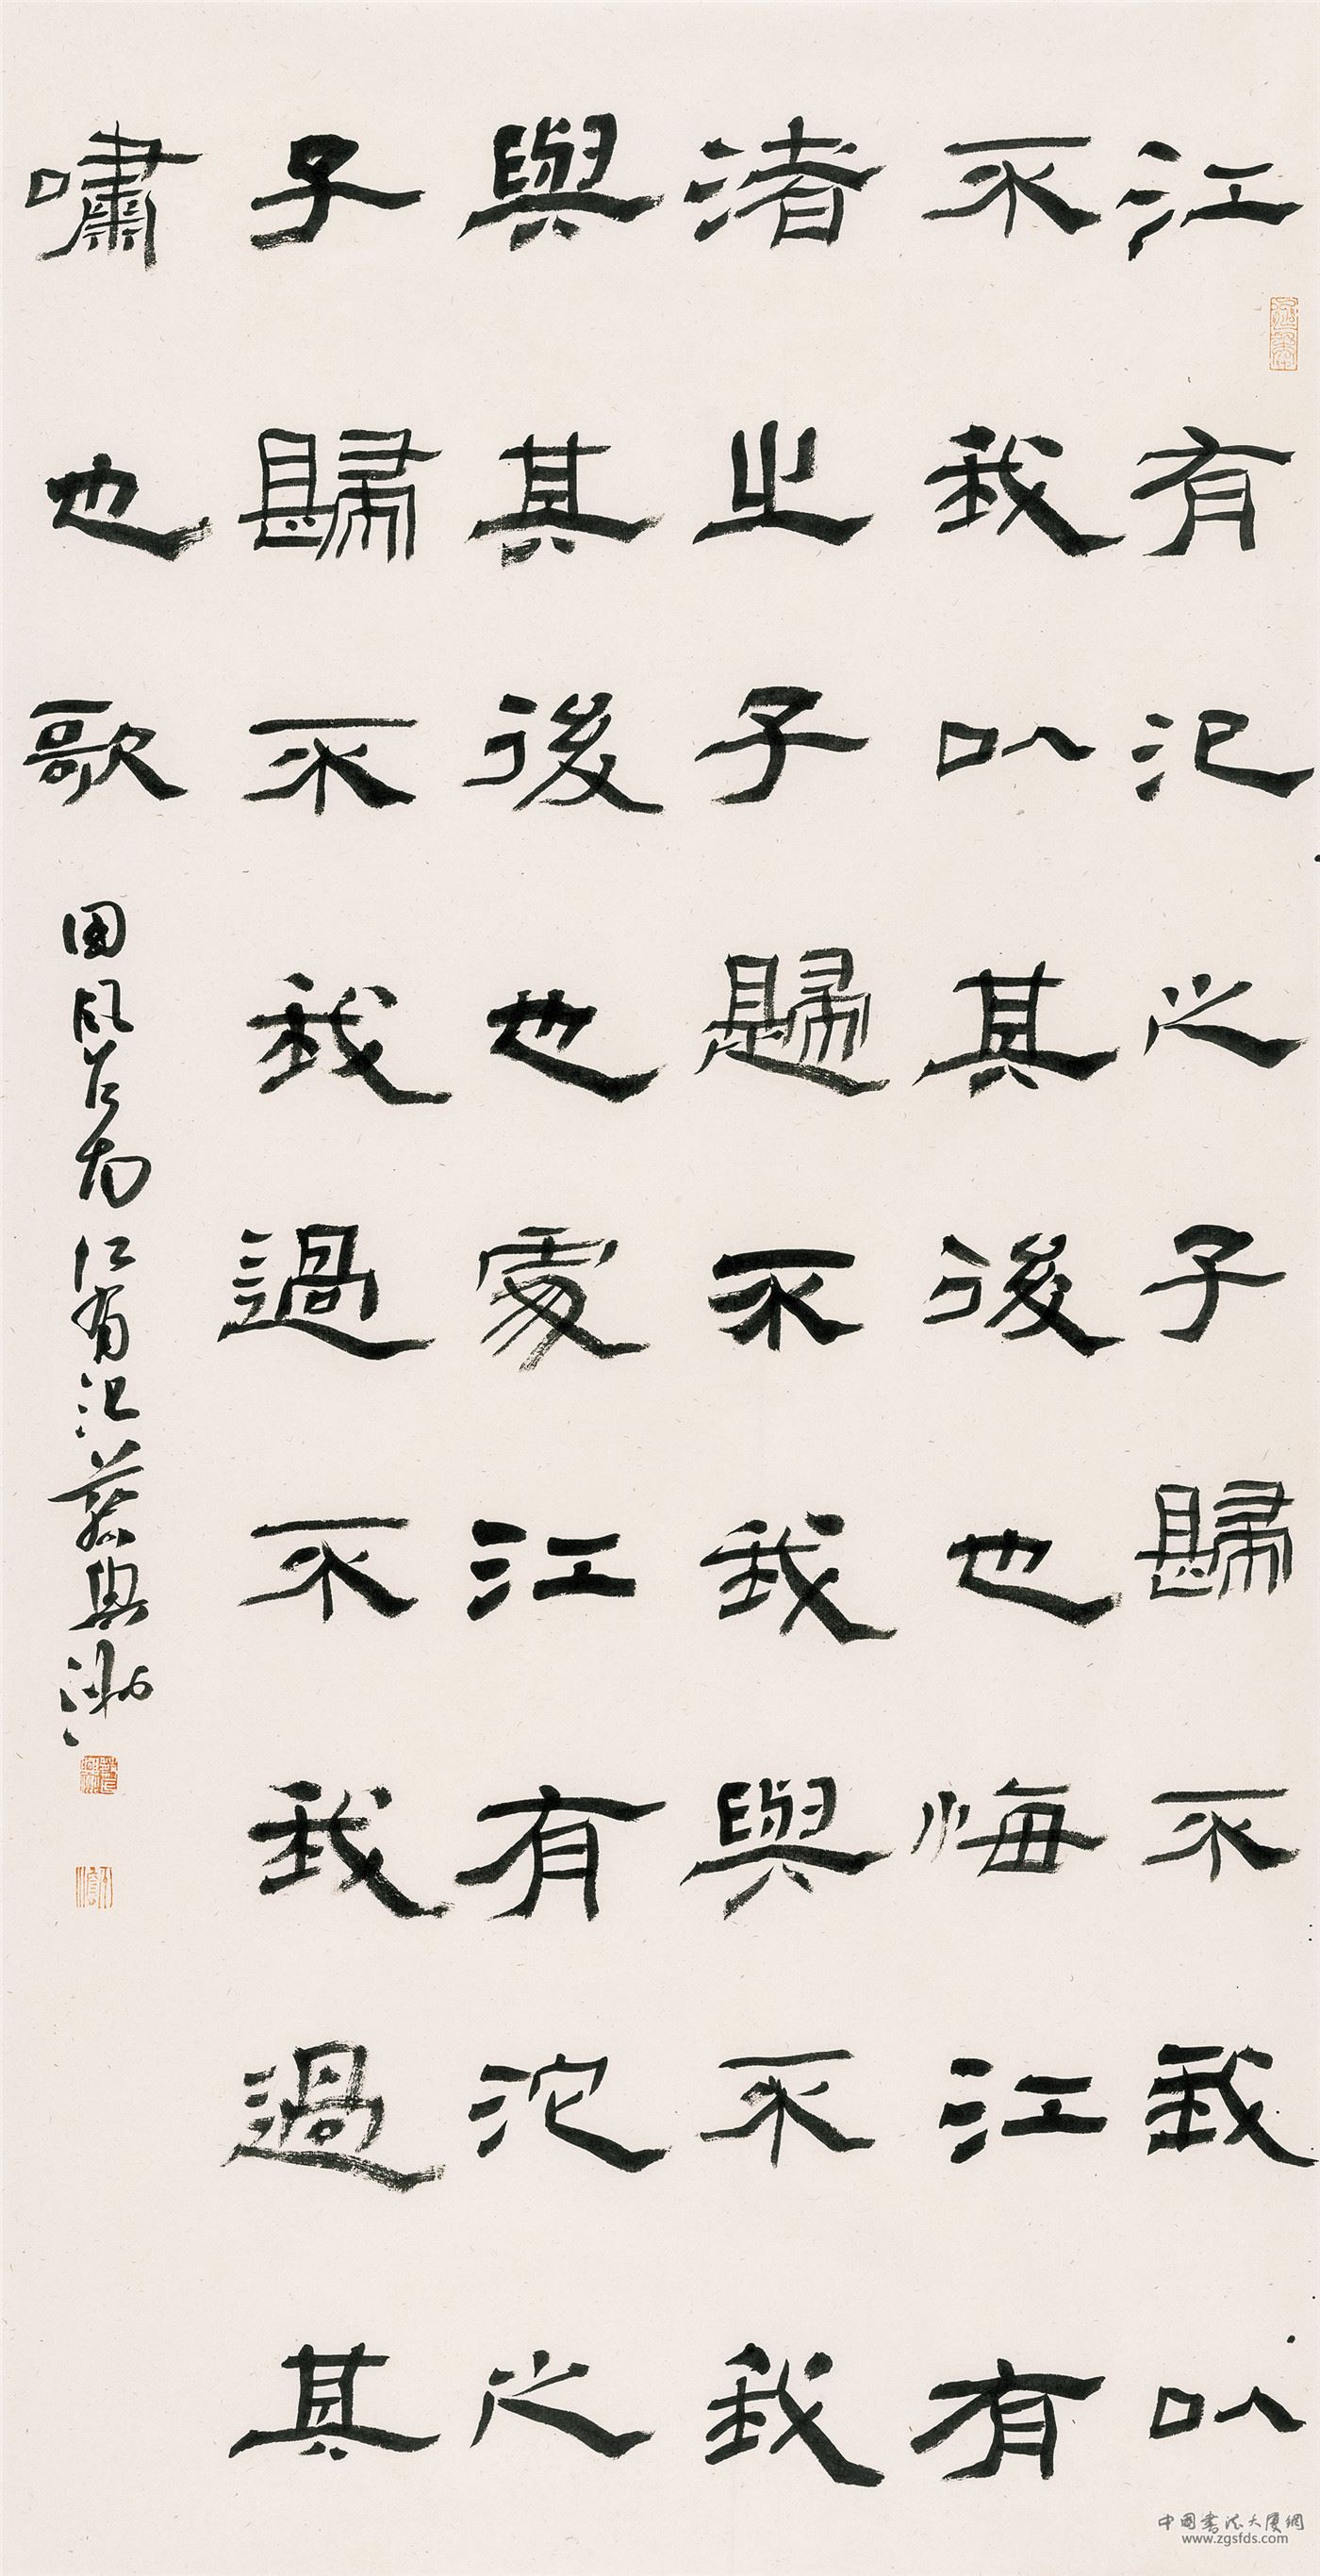 江有汜之子歸不我以
不我以其後也悔江有
渚之子歸不我與不我
與其後也處江有沱之
子歸不我過不我過其
嘯也歌
國風召南江有汜
中国书法大厦網
www.zgsfds.com